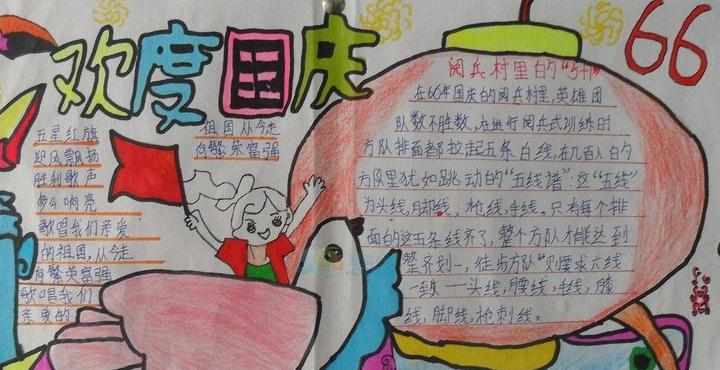 欢度国庆
66
五星红旗
迎风飘扬
胜利歌声
多么响亮
歌唱我们亲爱
的祖国,从今走
向繁荣富强
歌唱我们
亲爱的
祖国从今走
向繁荣富强
阅兵村里的"5个"
在66年国庆的阅兵村里,英雄团
队数不胜数,在进行阅兵式训练时
方队排面都拉起五条白线,在几百人的
方队里犹如跳动的"五线谱":这"五线"
为头线,胸线、枪线,手线。只有每个排
面的这五条线齐了,整个方队才能达到
整齐划一,徒步方队"则要求六线
一致——头线,腰线,手线,膝
线,脚线,枪刺线。